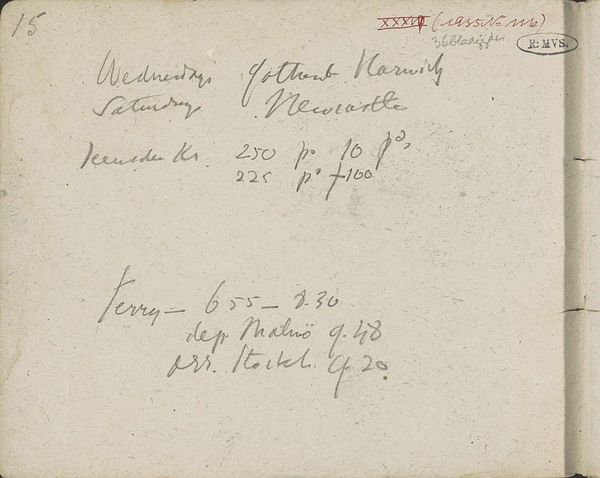 15
XXXIV (1935 No 116)
36 bladzijden
R: MVS.
Wednesdays Gothenb Harwich
Saturdays Newcastle
Kr. 250 po 10 pd,
225 po f 100
Ferry — 6 55 — 8.30
dep. Malmö 9.48
arr. Stockh. 9 20